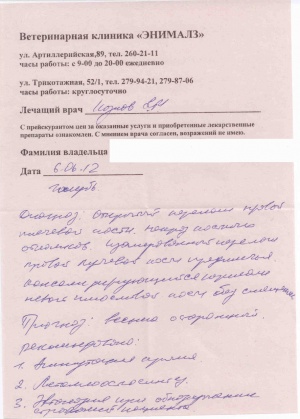 Ветеринарная клиника «ЭНИМАЛЗ»
ул. Артиллерийская,89, тел. 260-21-11
часы работы: с 9-00 до 20-00 ежедневно
ул. Трикотажная, 52/1, тел. 279-94-21, 279-87-06
часы работы: круглосуточно
Лечащий врач
С прейскурантом цен за оказанные услуги и приобретенные лекарственные
препараты ознакомлен. С мнением врача согласен, возражений не имею.
Фамилия владельца
Дата 6.06.12
голубь
Диагноз: Открытый перелом правой
плечевой кости. Некроз костного
перелом
правой лучевой кости
кости без смещения
Прогноз: весьма осторожный.
рекомендовано:
1. Ампутация крыла
2. Остеомосинтез.
3. Эвтаназия при обнаружении